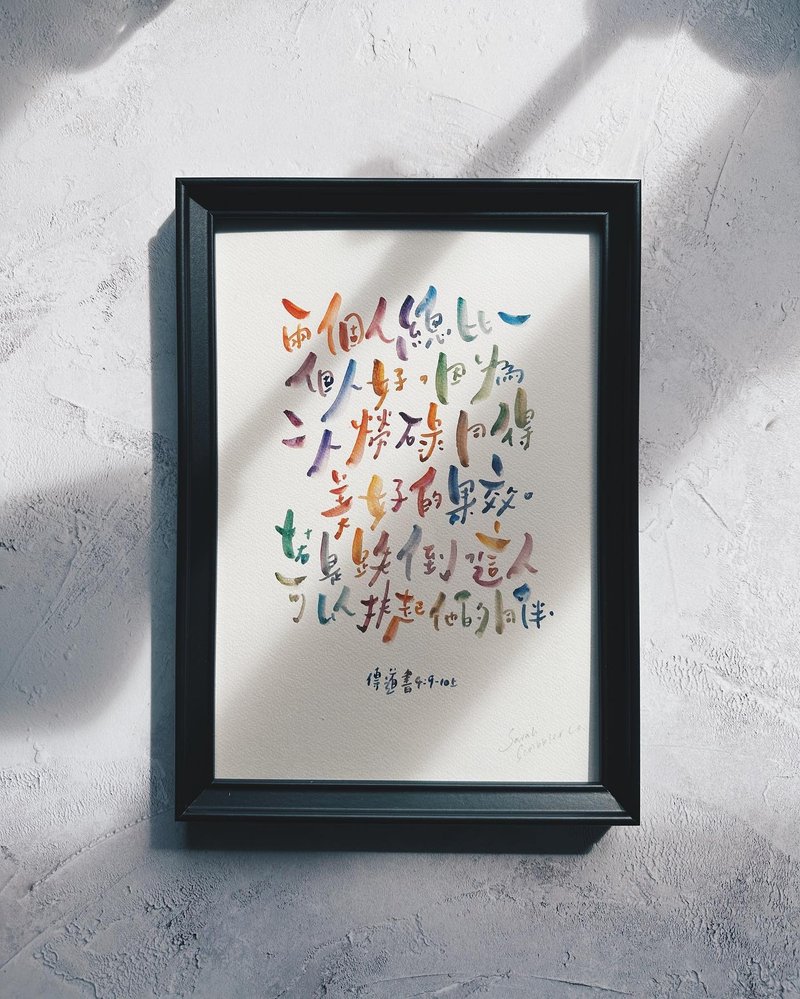 兩個人總比一
個人好，因為
二人勞碌同得
美好的果效。
若是跌倒這人
可以扶起他的同伴.
傳道書4:9-10上
Sarah
Scribbler Co.